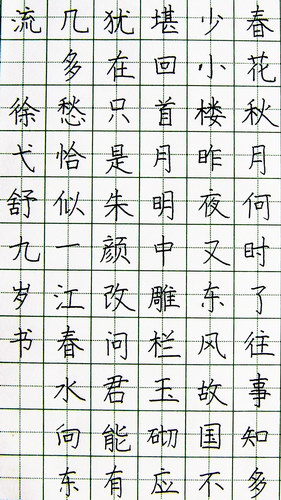 春花秋月何时了往事知多
少小楼昨夜又东风故国不
堪回首月明中雕栏玉砌应
犹在只是朱颜改问君能有
几多愁恰似一江春水向东
流
徐弋舒九岁书